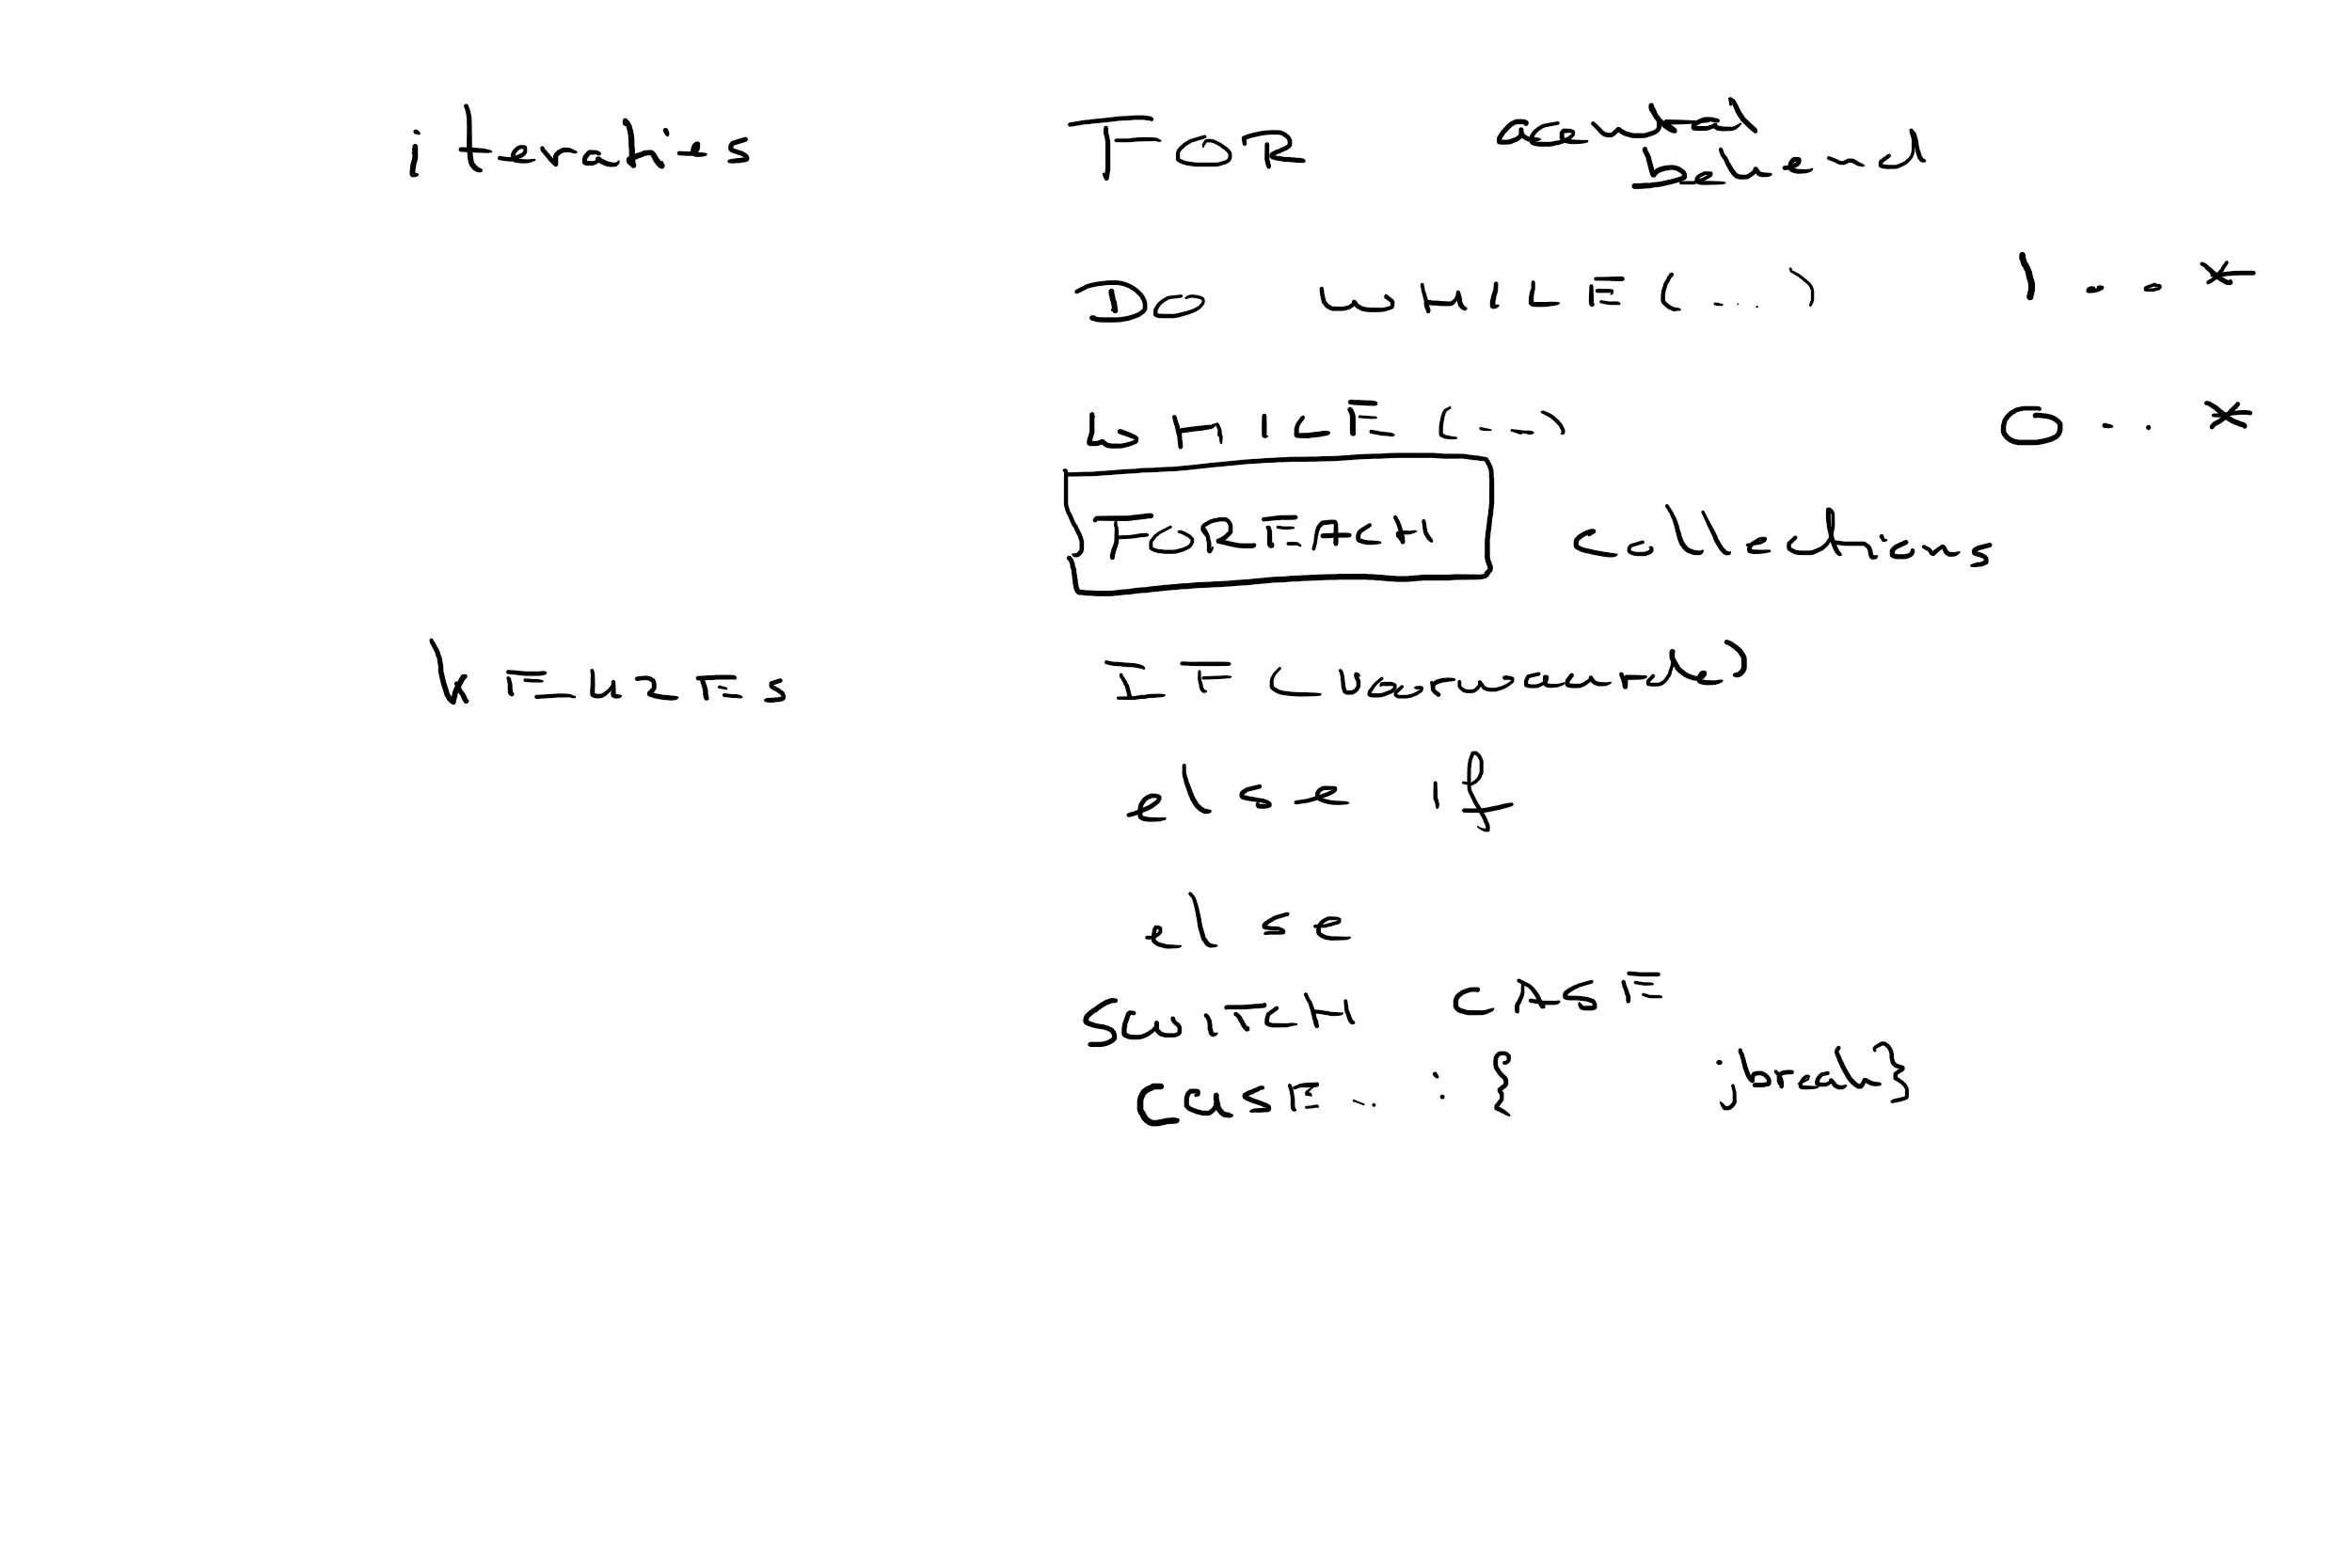 iteraties FOR aantal
bekend
DO WHILE (...) 1..*
WHILE (...) 0..*
FOREACH collections
KEUZES IF (voorwaarde)
else if
else
SWITCH CASE
CASE .. : { ;break}